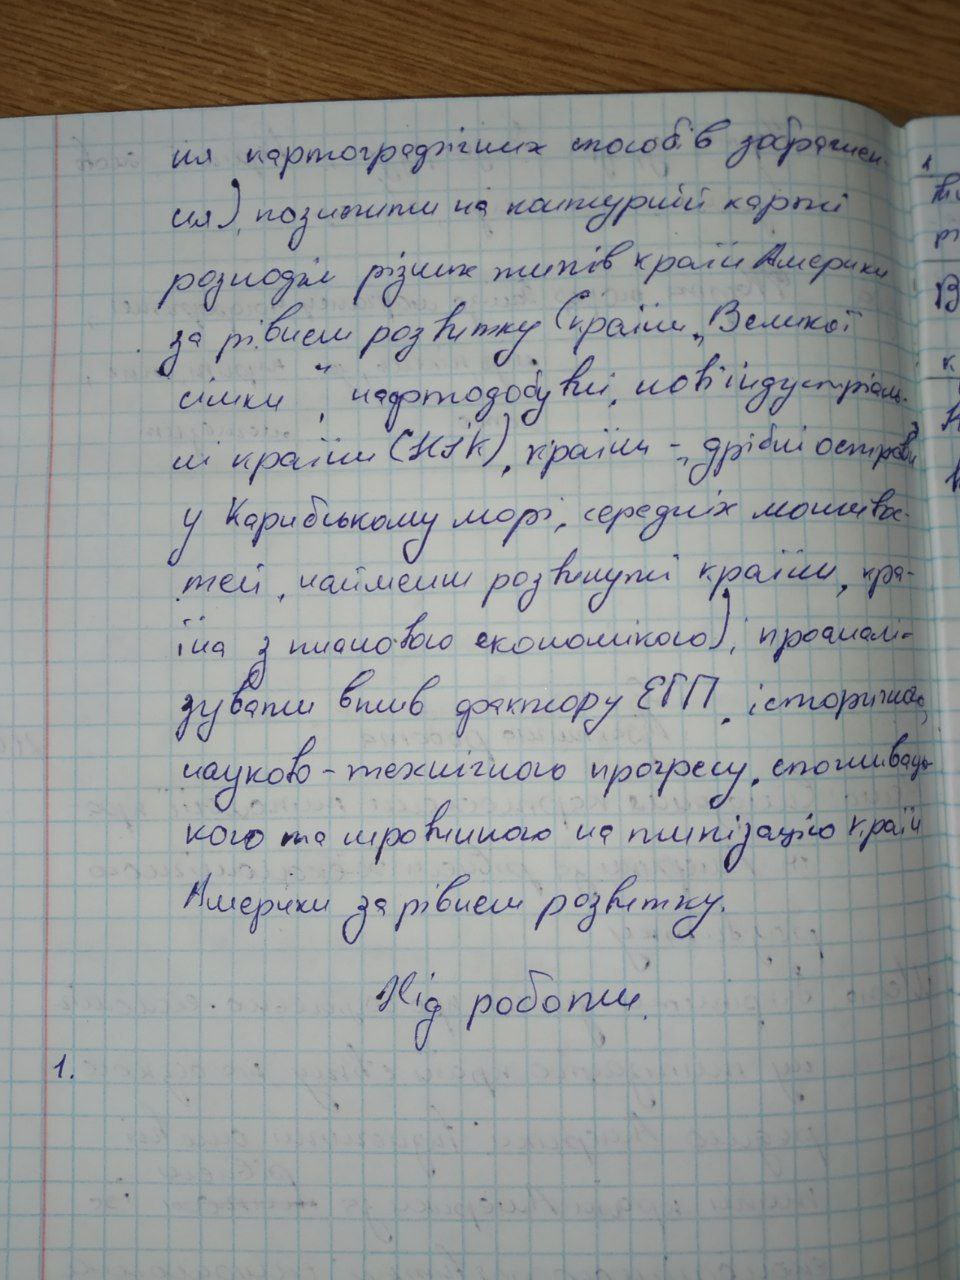 ня картографічних способів зображен-
ня), позначити на контурній карті
розподіл різних типів країн Америки
за рівнем розвитку (країни „Великої
сімки", нафтодобувні, нові індустріаль-
ні країни (НІК), країни - „дрібні острови
у Карибському морі, середніх можливос-
тей, найменш розвинуті країни, кра-
їна з плановою економікою), проаналі-
зувати вплив фактору ЕГП, історичного,
науково-технічного прогресу, споживаць-
кого та
на типізацію країн
Америки за рівнем розвитку.
Хід роботи.
1.